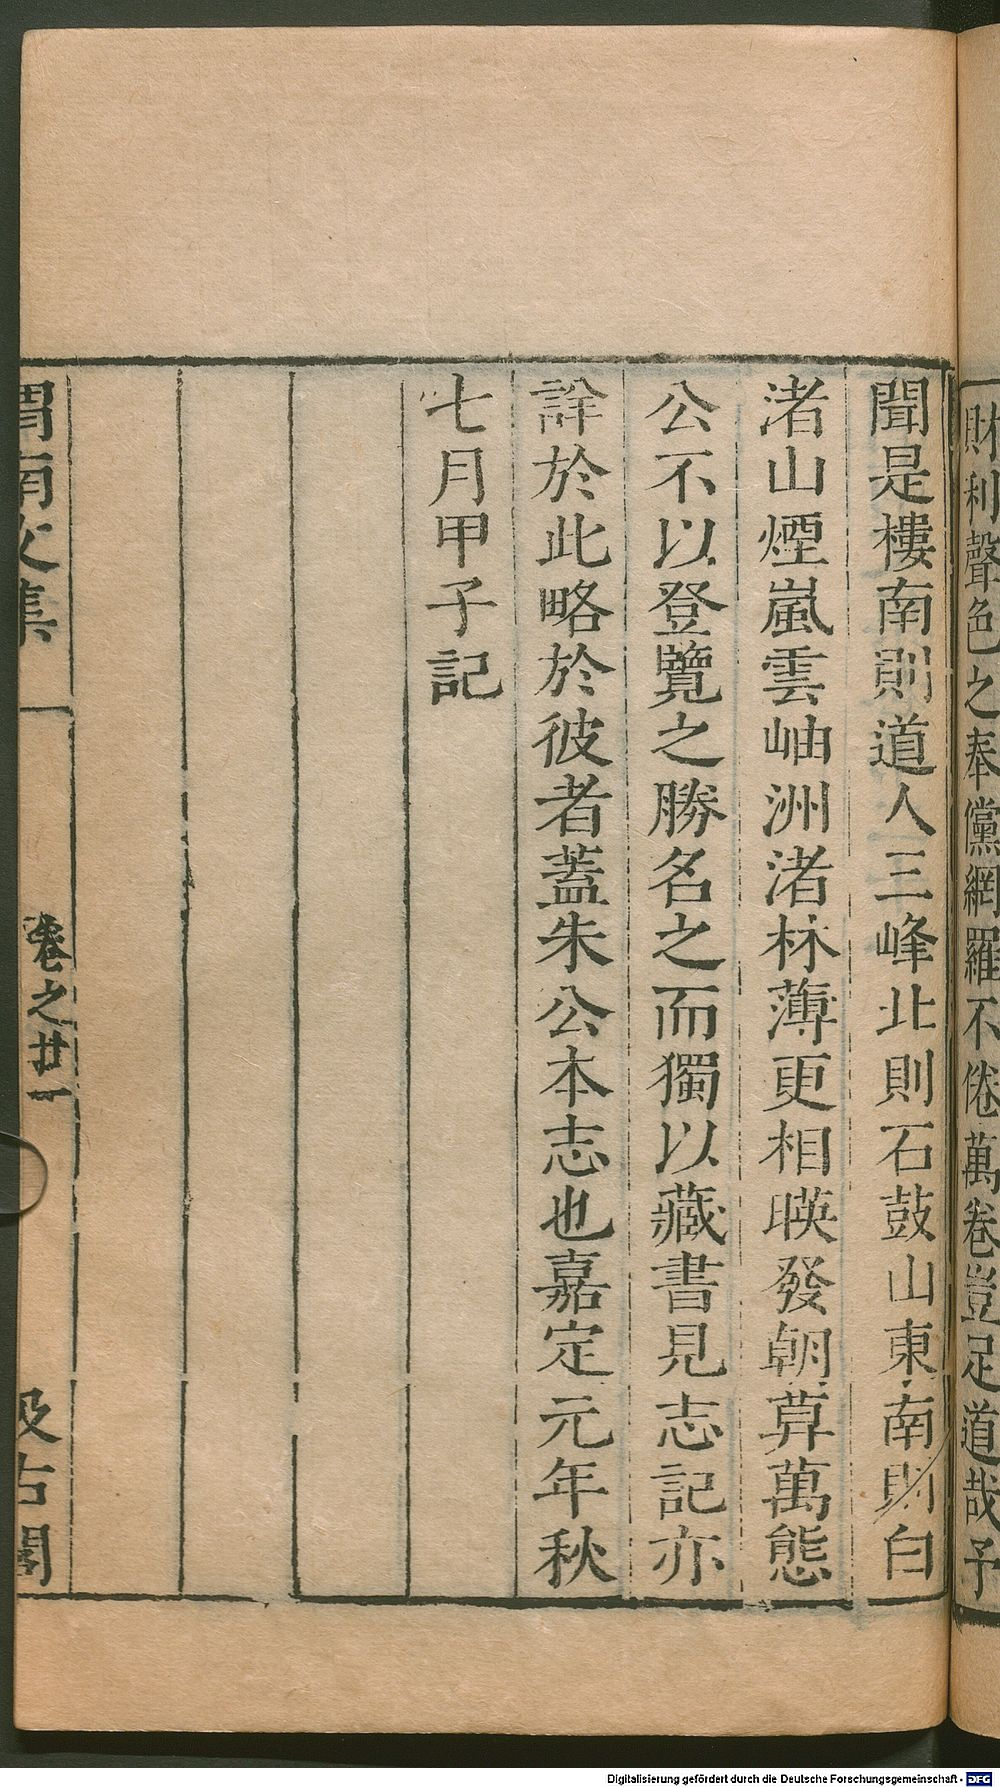 財利聲色之奉黨網羅不倦萬卷豈足道哉予
聞是樓南則道人三峰北則石鼓山東南則白
渚山煙嵐雲岫洲渚林薄更相暎發朝莫萬態
公不以登覽之勝名之而獨以藏書見志記亦
詳於此略於彼者蓋朱公本志也嘉定元年秋
七月甲子記
渭南文集
卷之廿一
汲古閣
Digitalisierung gefördert durch die Deutsche Forschungsgemeinschaft - DFG